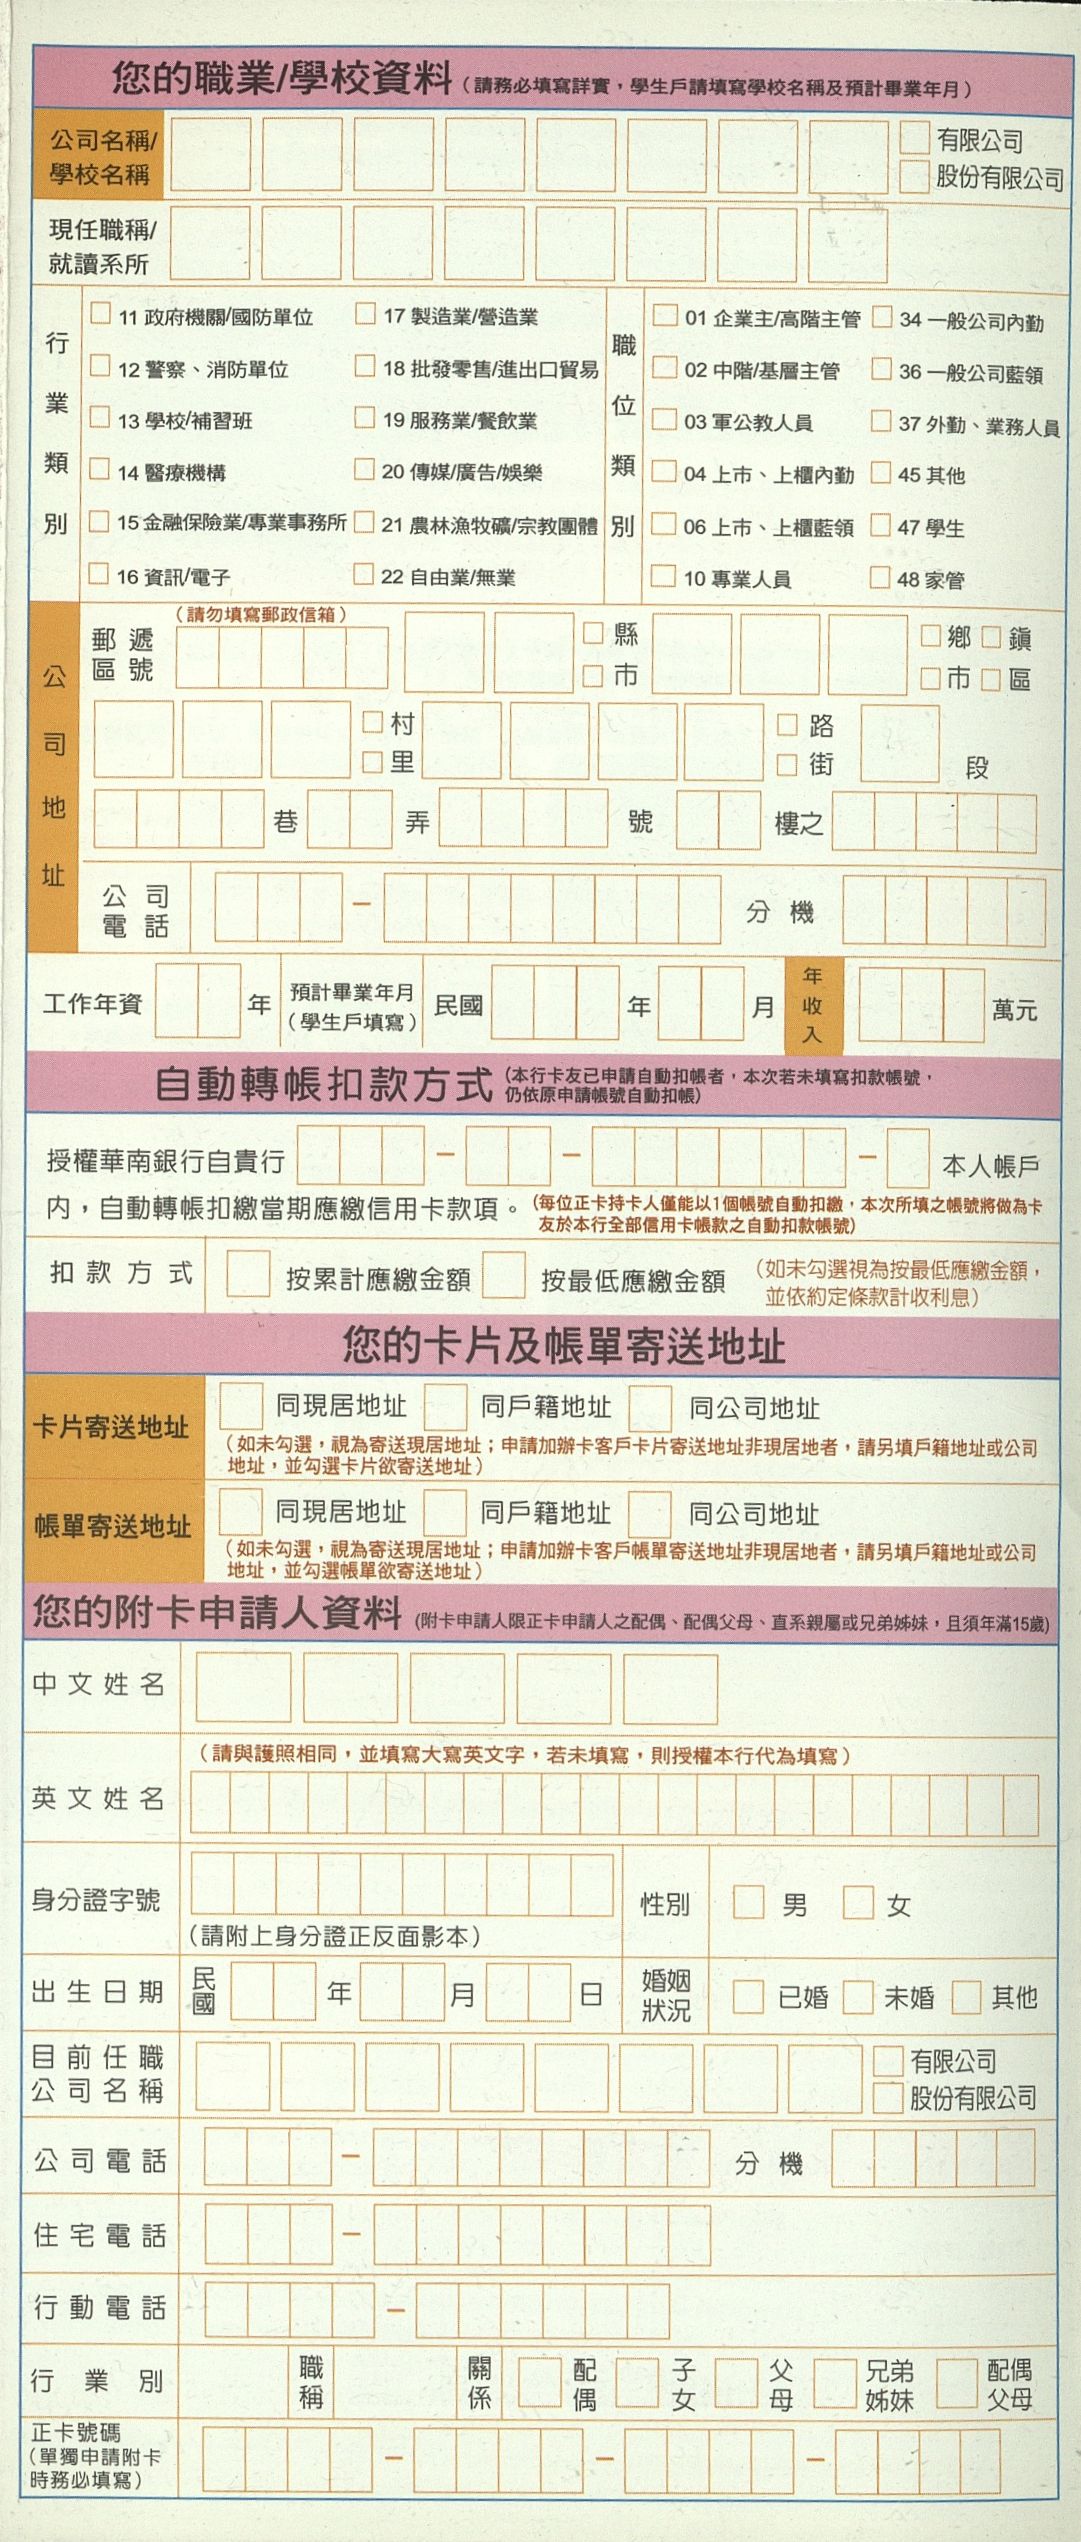 您的職業/學校資料（請務必填寫詳實，學生戶請填寫學校名稱及預計畢業年月）
公司名稱/
學校名稱
有限公司
股份有限公司
現任職稱/
就讀系所
行業類別
11 政府機關/國防單位
17 製造業/營造業
12 警察、消防單位
18 批發零售/進出口貿易
13 學校/補習班
19 服務業/餐飲業
14 醫療機構
20 傳媒/廣告/娛樂
15 金融保險業/專業事務所
21 農林漁牧礦/宗教團體
16 資訊/電子
22 自由業/無業
職位類別
01 企業主/高階主管
34 一般公司內勤
02 中階/基層主管
36 一般公司藍領
03 軍公教人員
37 外勤、業務人員
04 上市、上櫃內勤
45 其他
06 上市、上櫃藍領
47 學生
10 專業人員
48 家管
公司地址
（請勿填寫郵政信箱）
郵遞
區號
縣
市
鄉 鎮
市 區
村
里
路
街
段
巷 弄 號 樓之
公司
電話
－
分機
工作年資 年
預計畢業年月
（學生戶填寫）
民國 年 月
年收入
萬元
自動轉帳扣款方式
（本行卡友已申請自動扣帳者，本次若未填寫扣款帳號，
仍依原申請帳號自動扣帳）
授權華南銀行自貴行 － － － 本人帳戶
內，自動轉帳扣繳當期應繳信用卡款項。
（每位正卡持卡人僅能以1個帳號自動扣繳，本次所填之帳號將做為卡
友於本行全部信用卡帳款之自動扣款帳號）
扣款方式
按累計應繳金額
按最低應繳金額
（如未勾選視為按最低應繳金額，
並依約定條款計收利息）
您的卡片及帳單寄送地址
卡片寄送地址
同現居地址 同戶籍地址 同公司地址
（如未勾選，視為寄送現居地址；申請加辦卡客戶卡片寄送地址非現居地者，請另填戶籍地址或公司
地址，並勾選卡片欲寄送地址）
帳單寄送地址
同現居地址 同戶籍地址 同公司地址
（如未勾選，視為寄送現居地址；申請加辦卡客戶帳單寄送地址非現居地者，請另填戶籍地址或公司
地址，並勾選帳單欲寄送地址）
您的附卡申請人資料（附卡申請人限正卡申請人之配偶、配偶父母、直系親屬或兄弟姊妹，且須年滿15歲）
中文姓名
（請與護照相同，並填寫大寫英文字，若未填寫，則授權本行代為填寫）
英文姓名
身分證字號
（請附上身分證正反面影本）
性別
男 女
出生日期
民國 年 月 日
婚姻
狀況
已婚 未婚 其他
目前任職
公司名稱
有限公司
股份有限公司
公司電話 － 分機
住宅電話 －
行動電話 －
行業別
職稱
關係
配偶
子女
父母
兄弟
姊妹
配偶
父母
正卡號碼
（單獨申請附卡
時務必填寫）
－ － －